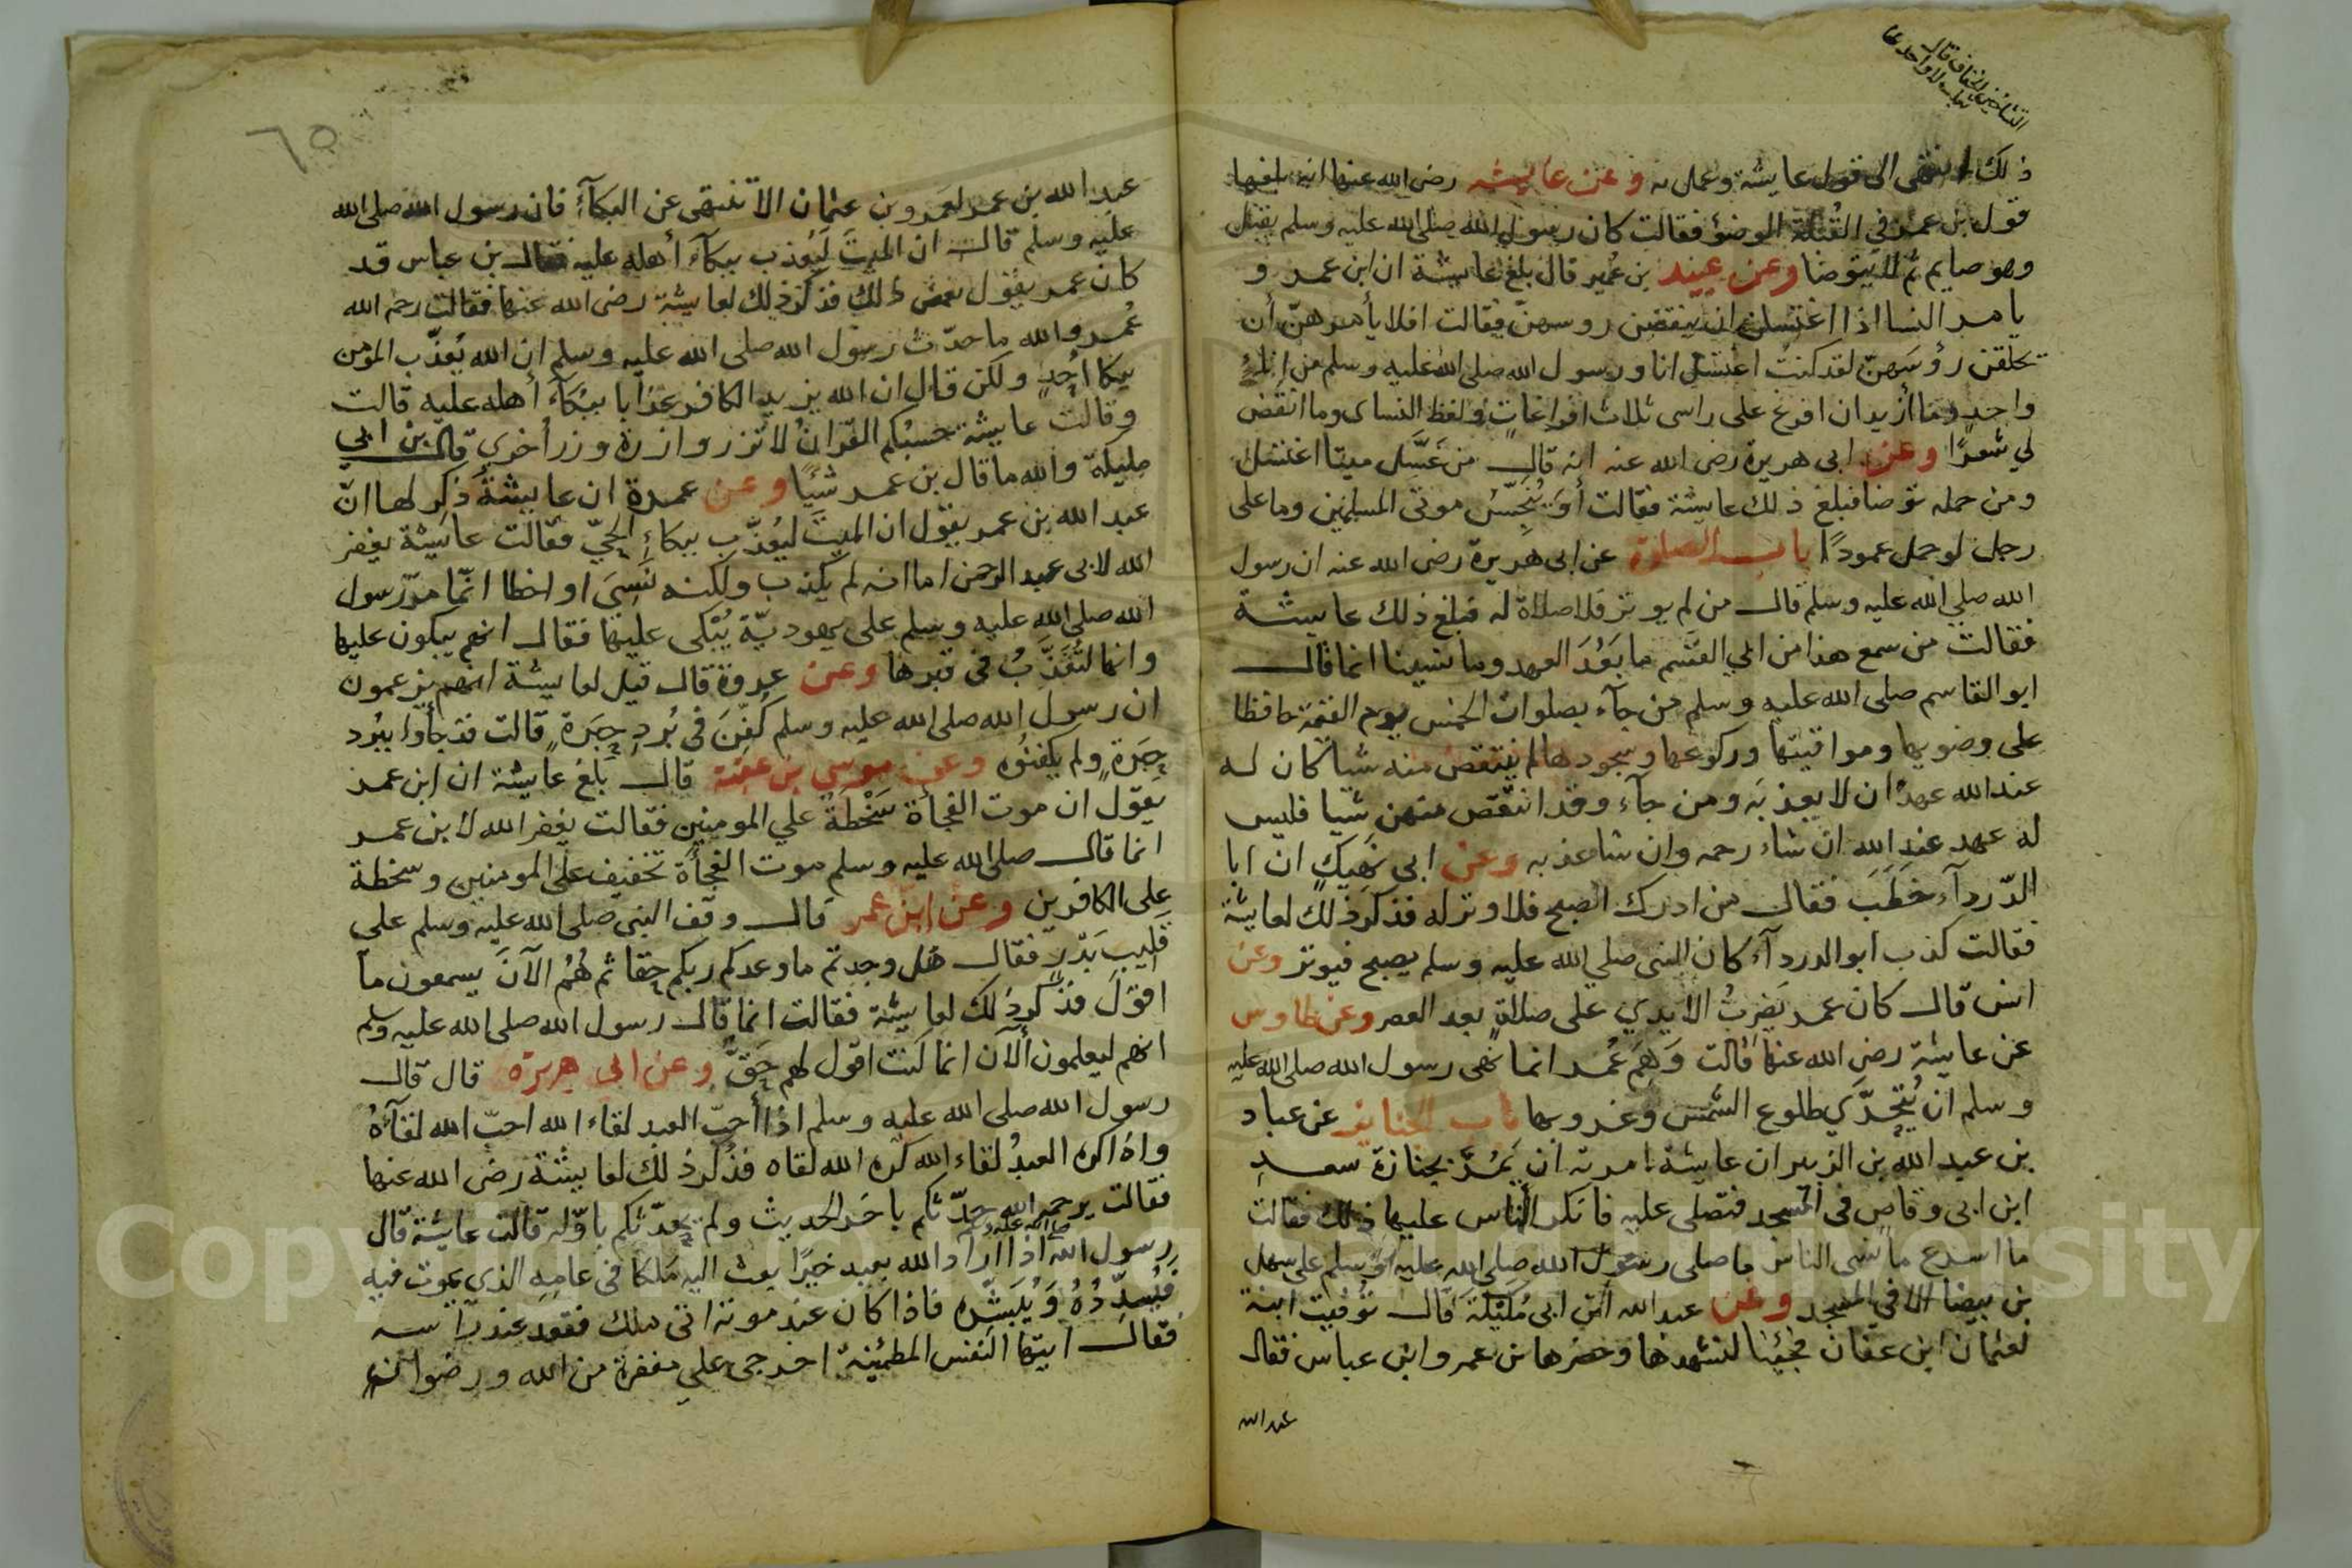 التساخين الخفاف قال
ثعلب لا واحد لها
ذلك انتهى الى قول عايشة وعمل به وعن عايشه رضى الله عنها انه بلغها
قول بن عمر في القُبلة الوضؤ فقالت كان رسول الله صلى الله عليه وسلم يقبل
وهو صايم ثم لا يتوضا وعن عبيد بن عُمير قال بلغ عايشة ان ابن عمرو
يامر النسا اذا اغتسلن ان ينقضن روسهنّ فقالت افلا يأمرهنّ أن
تحلقن رؤسَهنّ لقد كنتُ اغتسل انا ورسول الله صلى الله عليه وسلم من انآء
واحدٍ وما أزيد ان افرغ على راسى ثلاث افراغاتٍ ولفظ النساى وما انقض
لي شعرًا وعن ابى هريرة رضى الله عنه انه قال من غَسَّل ميتا اغتسل
ومن حمله توضا فبلغ ذلك عايشة فقالت أوَ يُنَجّسُ موتى المسلمين وما على
رجل لو حمل عمودًا باب الصلوة عن ابى هريرة رضى الله عنه ان رسول
الله صلى الله عليه وسلم قال من لم يوتر فلا صلاة له فبلغ ذلك عايشة
فقالت من سمع هذا من ابي القسم ما بَعُدَ العهد وما نسينا انما قال
ابو القاسم صلى الله عليه وسلم من جآء بصلوات الخمس يوم القيمة حافظا
على وضويها ومواقيتها وركوعها وسجودها لم ينتقص منه شيا كان له
عند الله عهدٌ ان لا يعذبَه ومن جآء وقد انتقص منهن شيا فليس
له عهد عند الله ان شاء رحمه وان شا عذبه وعن ابى نَهِيكٍ ان ابا
الدّردآء خَطَبَ فقال من ادرك الصبح فلا وتر له فذكر ذلك لعايشة
فقالت كذب ابو الدردآء كان النبى صلي الله عليه وسلم يصبح فيوتر وعن
انس قال كان عمر يَضرِبُ الايدي على صلاةٍ بعد العصر وعن طاوس
عن عايشة رضى الله عنها قالت وَهِمَ عُمَر انما نهى رسول الله صلى الله عليه
وسلم ان يُتحرّى طلوع الشمس وغروبها باب الجنايز عن عباد
بن عبد الله بن الزبير ان عايشة امرته ان يَمُرّ بجنازة سعد
ابن ابى وقاص فى المسجد فتصلى عليه فانكر الناس عليها ذلك فقالت
ما اسرع ما نسى الناس ما صلى رسول الله صلى الله عليه وسلم على سهل
بن بيضا الا في المسجد وعن عبد الله ابن ابى مُلَيْكة قال توفيت ابنة
لعثمان ابن عفان فجئنا لنشهدها وحضرها بن عمر وابن عباس فقال
عبد الله
٦٥
عبد الله بن عمر لعَمرو بن عثمان الا تنتهى عن البكآء فان رسول الله صلى الله
عليه وسلم قال ان الميتَ لَيُعذب ببكآء أهله عليه فقال بن عباس قد
كان عمر يقول بعض ذلك فذكر ذلك لعايشة رضى الله عنها فقالت رحم الله
عُمر والله ما حدّث رسول الله صلى الله عليه وسلم ان الله يُعذّب المؤمن
ببكا أحدٍ ولكن قال ان الله يزيد الكافر عذابا ببكآء أهله عليه قالت
وقالت عايشة حسبُكم القرانُ لا تزر وازرة وزر أخرى قال بن ابي
مليكة والله ما قال بن عمر شيًا وعن عمرة ان عايشة ذكر لها انّ
عبد الله بن عمر يقول ان الميتَ ليُعذّب ببكاءِ الحيّ فقالت عايشة يغفر
الله لابى عبد الرحمن اما انه لم يكذب ولكنه نَسِىَ او اخطا انّما مرّ رسول
الله صلى الله عليه وسلم على يهوديّة يُبْكى عليها فقال انهم يبكون عليها
وانها لتُعَذَّبُ فى قبرها وعن عروة قال قيل لعايشة انهم يزعمون
ان رسول الله صلى الله عليه وسلم كُفّنَ فى بُردِ حِبَرةٍ قالت قد جأوا ببُرد
حِبَرةٍ ولم يكفنُوه وعن موسى بن عقبة قال بلغ عايشة ان ابن عمر
يقول ان موت الفجأة سَخْطةٌ علي المومنين فقالت يغفر الله لابن عمر
انما قال صلى الله عليه وسلم موت الفجأة تخفيف على المومنين وسخطة
على الكافرين وعن ابن عمر قال وقف النبى صلى الله عليه وسلم على
قَليبِ بَدْرٍ فقال هل وجدتم ما وعدكم ربكم حقا ثم هُمُ الآنَ يسمعون ما
اقول فذكر ذلك لعايشة فقالت انما قال رسول الله صلى الله عليه وسلم
انهم ليعلمون ألآن انما كنت اقول لهم حَقّ وعن ابى هريرة قال قال
رسول الله صلى الله عليه وسلم اذا أحبّ العبد لقاء الله احبّ الله لقآءهُ
واذا كره العبدُ لقاء الله كره الله لقاه فذُكر ذلك لعايشة رضى الله عنها
فقالت يرحمه الله حدّثكم باخر الحديث ولم يحدّثكم باوّله قالت عايشة قال
رسول الله صلى الله عليه وسلم اذا اراد الله بعبد خيرًا بعث اليه مَلكا فى عامِه الذي يموت فيه
فيُسدّدُهُ وَيُبَشّره فاذا كان عند موته اتى ملك فقعد عند راسه
فقال ايتها النفس المطمئينة اخرجى على مغفرة من الله ورضوانه